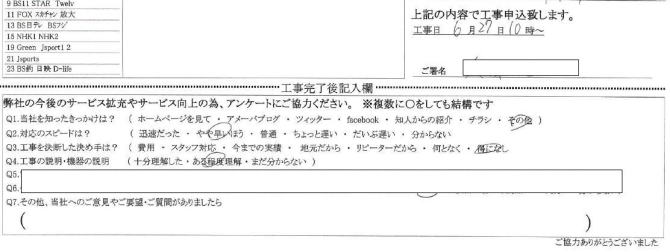 9 BS11 STAR Twelv
11 FOX スカチャン 放大
13 BS日テレ BSフジ
15 NHK1 NHK2
19 Green Jsport1 2
21 Jsports
23 BS釣 日映 D-life
上記の内容で工事申込致します。
工事日 6 月 27 日 10 時~
ご署名
工事完了後記入欄
弊社の今後のサービス拡充やサービス向上の為、アンケートにご協力ください。 ※複数に〇をしても結構です
Q1.当社を知ったきっかけは? ( ホームページを見て ・ アメーバブログ ・ ツィッター ・ facebook ・ 知人からの紹介 ・ チラシ ・ その他 )
Q2.対応のスピードは? ( 迅速だった ・ やや早いほう ・ 普通 ・ ちょっと遅い ・ だいぶ遅い ・ 分からない )
Q3.工事を決断した決め手は? ( 費用 ・ スタッフ対応 ・ 今までの実績 ・ 地元だから ・ リピーターだから ・ 何となく ・ 特になし
Q4.工事の説明・機器の説明 ( 十分理解した ・ ある程度理解 ・ まだ分からない )
Q5.
Q6.
Q7.その他、当社へのご意見やご要望・ご質問がありましたら
( )
ご協力ありがとうございました